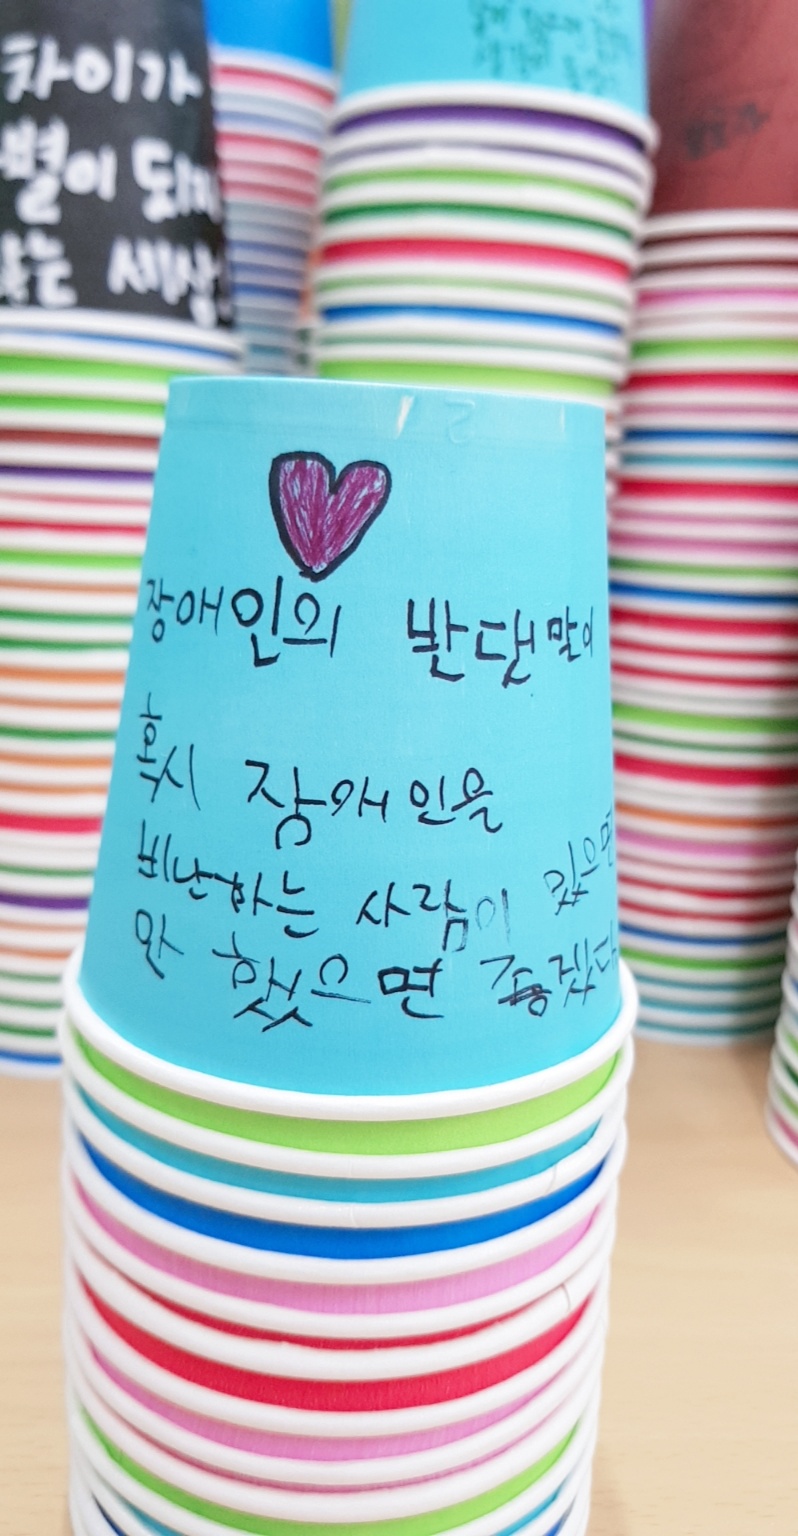 차이가
별이 되지
않는 세상
장애인의 반댓말이
혹시 장애인을
비난하는 사람이 있으면
안 했으면 좋겠다